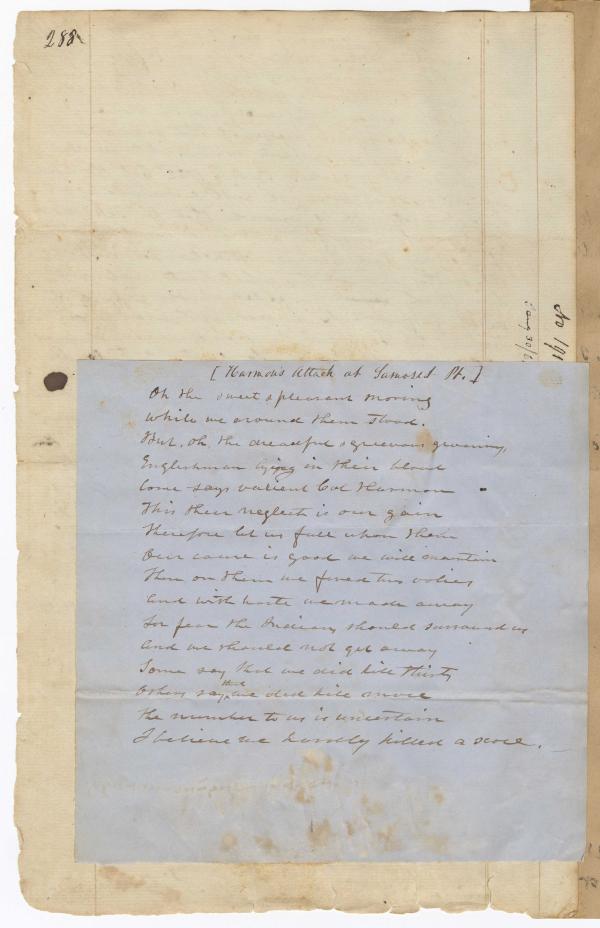 288
No 191
[Harmon's Attack at Samoset Pt.]
Oh the sweet & pleasant moving
While we around them stood.
But, oh, the dreadful & grievous groaning,
Englishman lying in their blood
Come says varient Col Harmon
This their neglect is our gain
Therefore let us fall upon them
Our cause is good we will mantin
Then on them we fired two volies
And with haste we made away
For fear the Indians should surround us
And we should not get away
Some say that we did kill thirty
Others say that we did kill more
The number to us is uncertain
I believe we hardly killed a score.